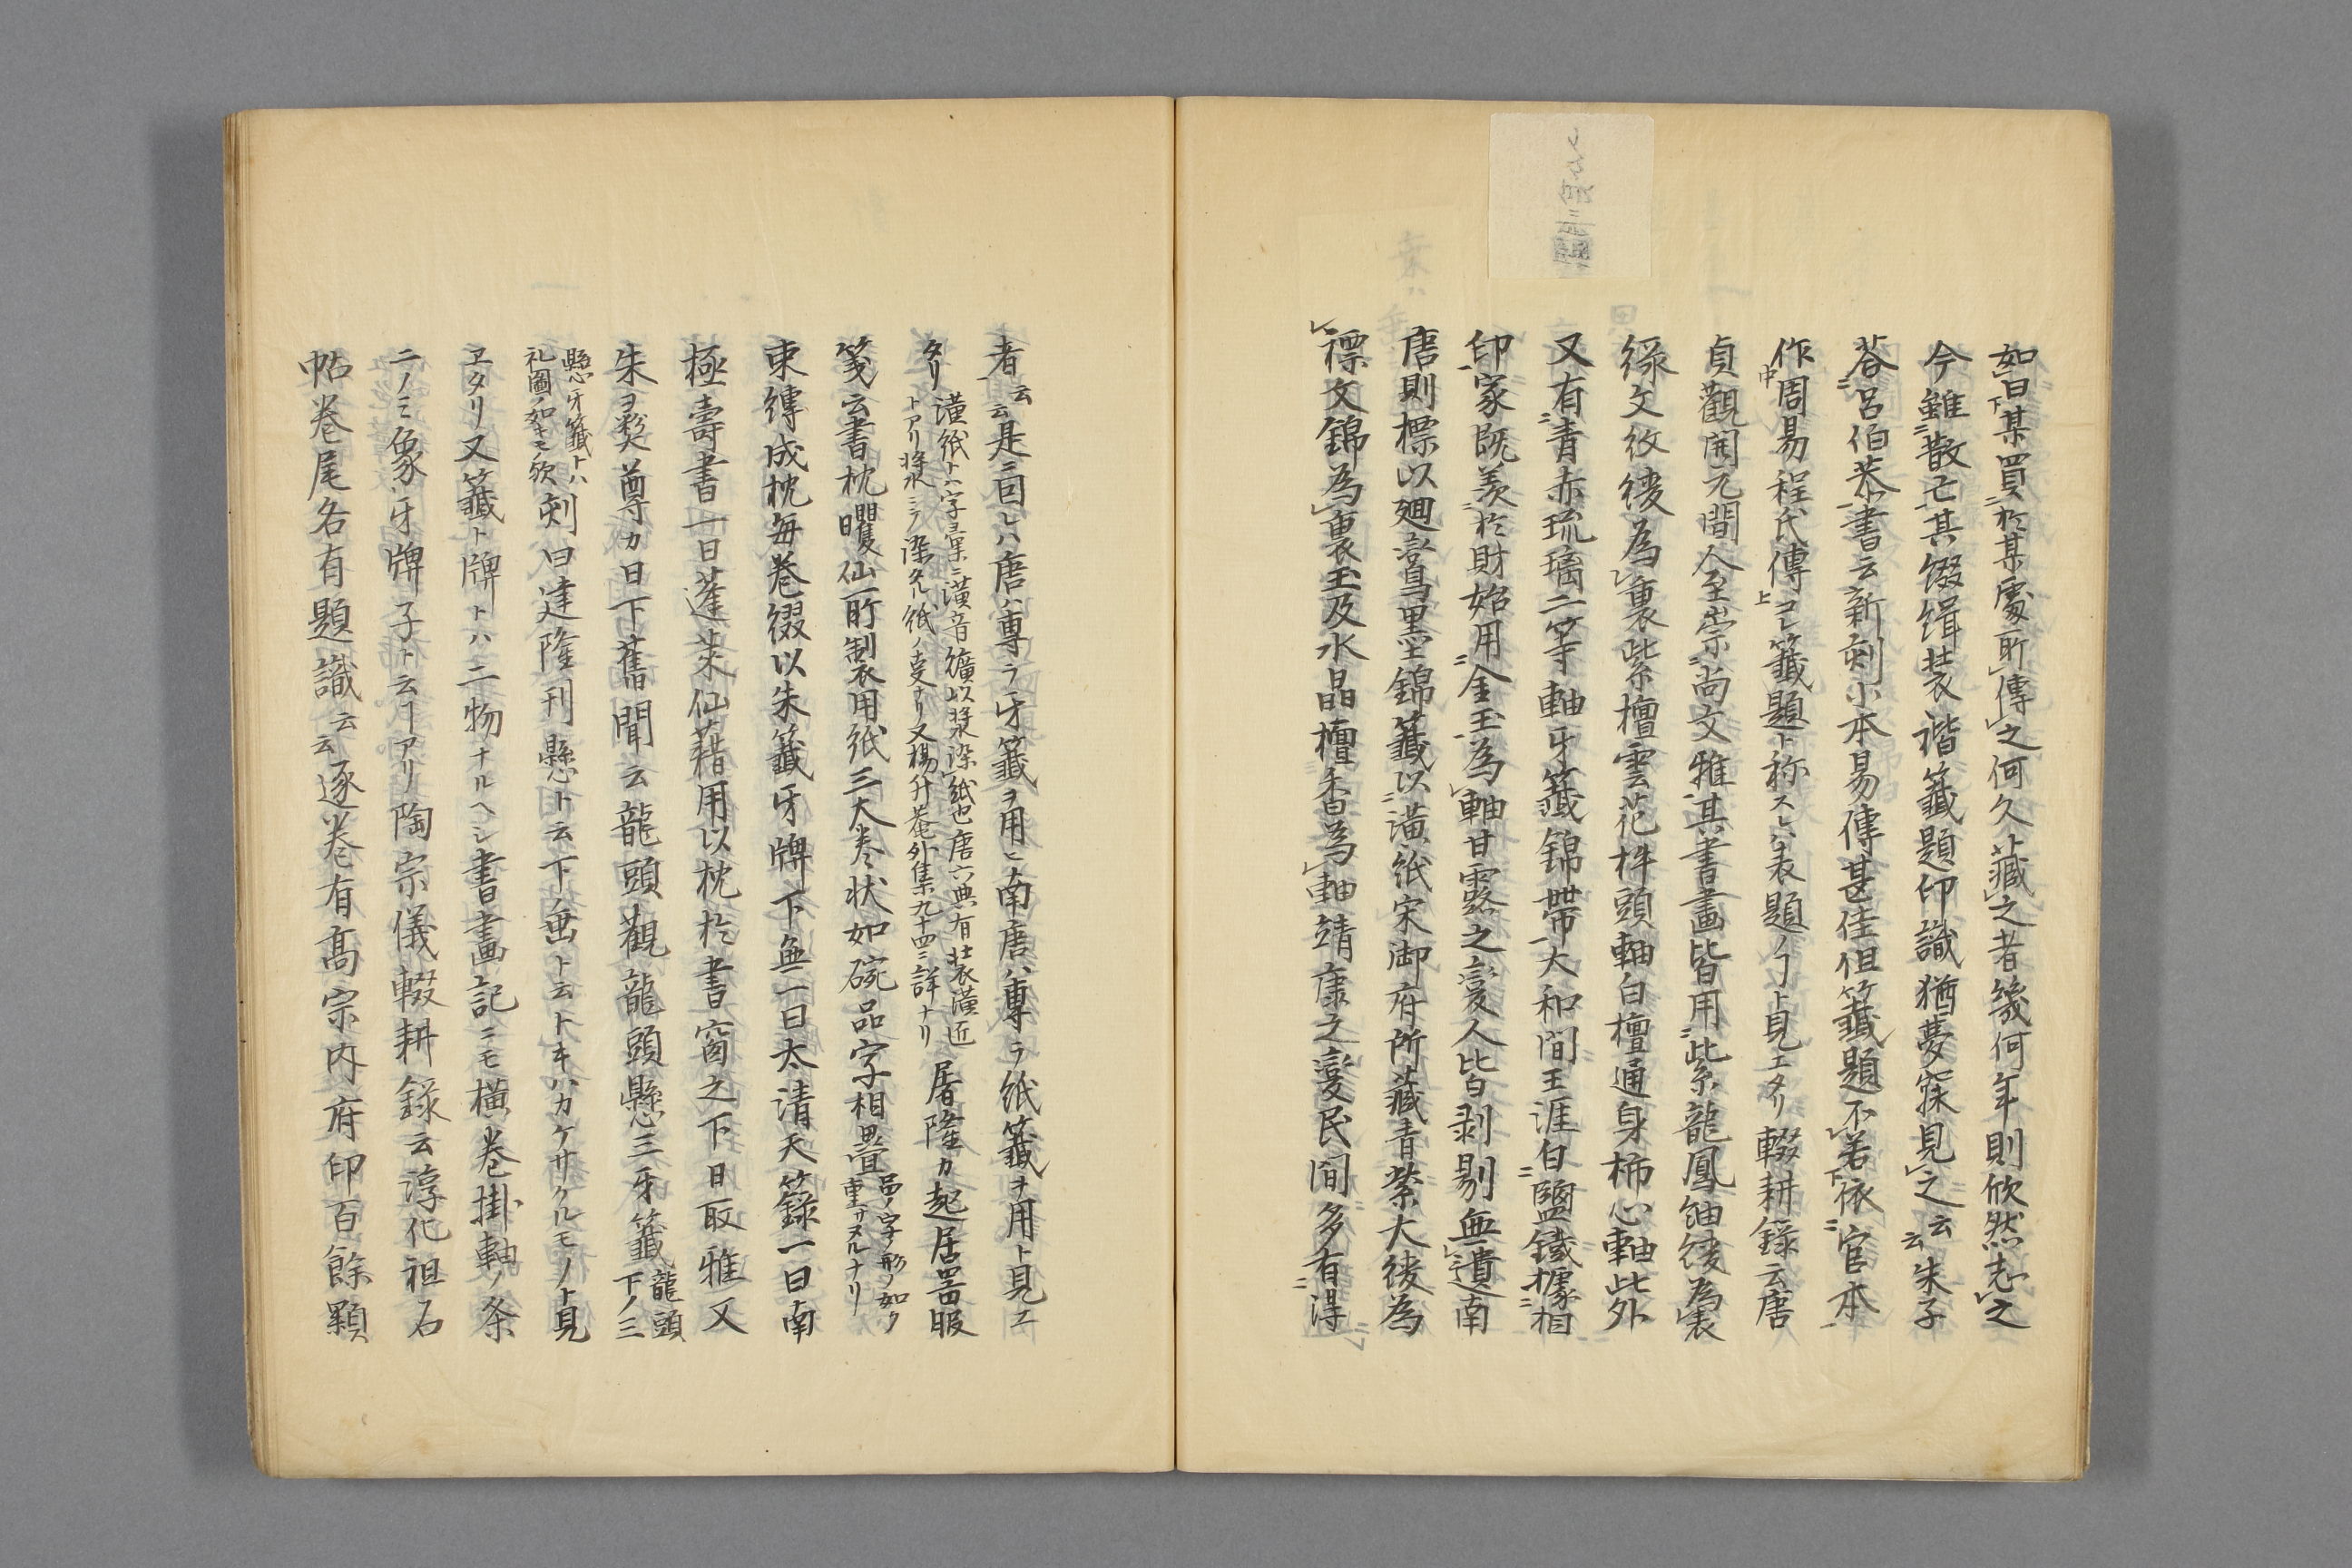 如曰某買於某處所傳之何久藏之者幾何年則欣然志之
今雖散亡其綴緝装諧籤題印識猶夢寐見之云云朱子
荅呂伯恭書云新刻小本易傳甚佳但籤題不若依官本
作周易程氏傳コレ籤題ト称スレハ表題ノヿト見エタリ輟耕錄云唐
貞觀開元間人至崇尚文雅其書畫皆用紫龍鳳紬綾為表
緑文紋綾為裏紫檀雲花杵頭軸白檀通身柿心軸此外
又有青赤琉璃二等軸牙籤錦帶大和間王涯自鹽鐵據相
印家既羨於財始用金玉為軸甘露之變人皆剥剔無遺南
唐則標以廻鸞墨錦籤以潢紙宋御府所藏青紫大綾為
褾文錦為裏玉及水晶檀香為軸靖康之變民間多有得
者云云是ニ因レハ唐ハ專ラ牙籤ヲ用ヒ南唐ハ專ラ紙籤ヲ用ト見エ
タリ
潢紙トハ字彙ニ潢音纊以漿染紙也唐六典有装潢匠
トアリ漿水ニテ染タル紙ノ支ナリ又楊升菴外集九十四ニ詳ナリ
屠隆カ起居噐服
箋云書枕曜仙所制裘用紙三大巻状如碗品字相疊
品ノ字ノ形ノ如ク
重サスルナリ
束縳成枕毎巻綴以朱籤牙牌下無一曰太清天籙一曰南
極壽書一曰蓬莱仙藉用以枕於書窗之下日取雅又
朱ヲ彜尊カ日下舊聞云龍頭觀龍頭懸三牙籤
龍頭
下ノ三
懸牙籤トハ
礼圖ノ如キモノ欤
刻曰建隆刊懸ト云下ノ垂ト云トキハカケサクルモノト見
ヱタリ又籤ト牌トハ二物ナルヘシ書畫記ニモ横巻掛軸ノ条
ニノミ象牙牌子ト云ヿアリ陶宗儀輟耕錄云淳化祖石
帖巻尾各有題識云云逐巻有髙宗内府印百餘顆